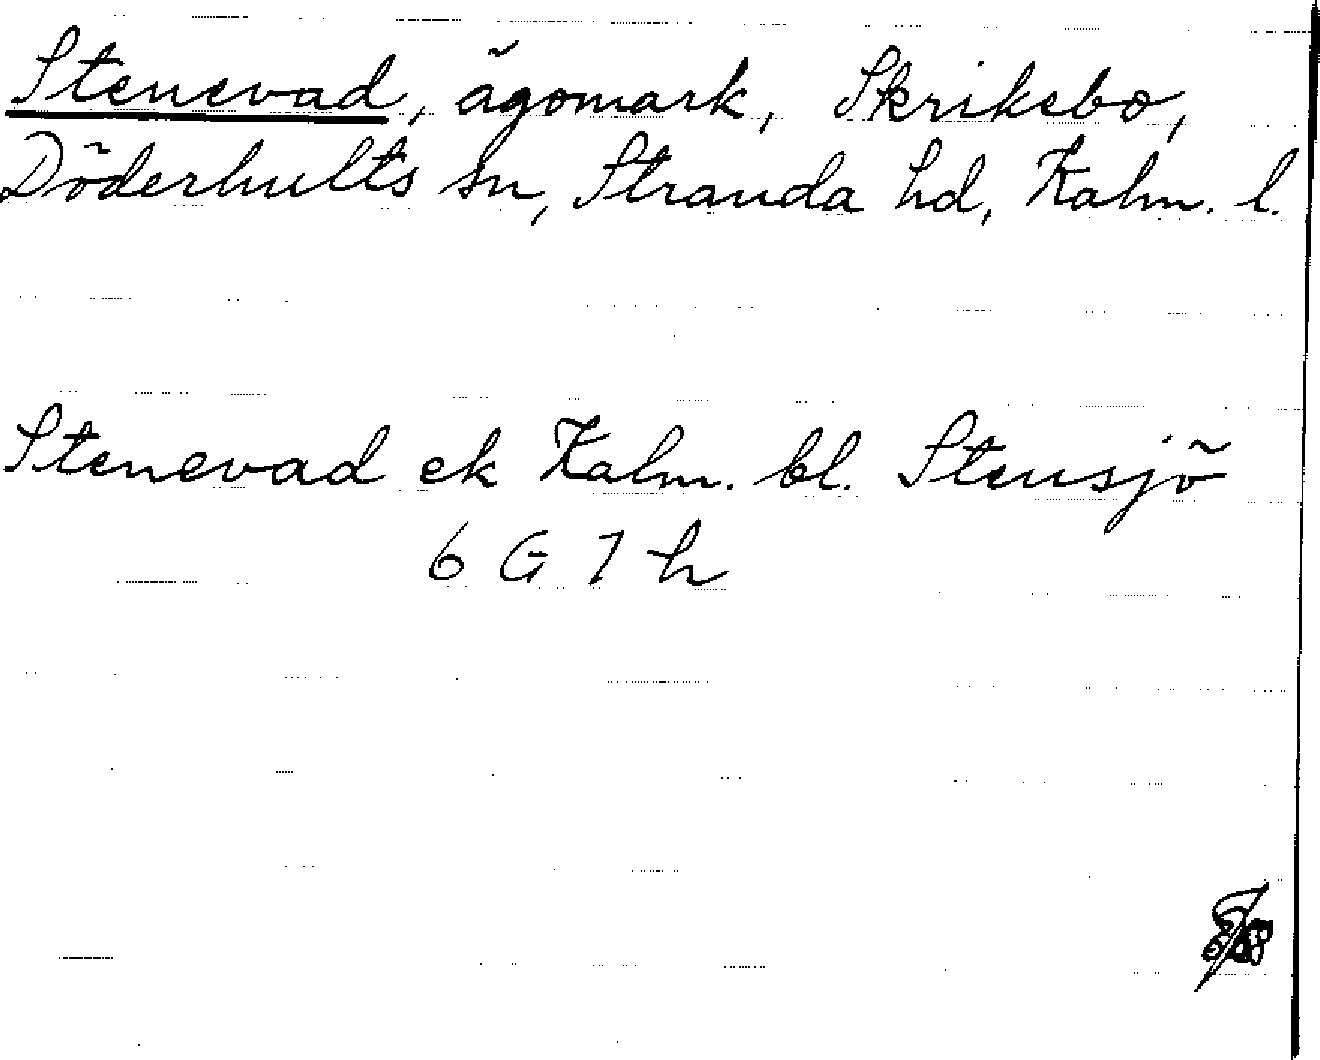 Stenevad, ägomark, Skrikebo,
Döderhults sn, Stranda hd, Kalm. l.
Stenevad ek Kalm. bl. Stensjö
6 G 7 h